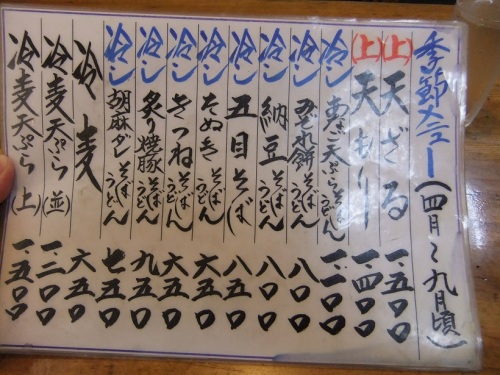 季節メニュー(四月〜九月頃)
(上)天ざる 一、五〇〇
(上)天もり 一、四〇〇
冷し 天ぷらそばうどん 一、一〇〇
冷し みぞれ餅そばうどん 八〇〇
冷し 納豆そばうどん 八〇〇
冷し 五目そば 八五〇
冷し たぬきそばうどん 六五〇
冷し きつねそばうどん 六五〇
冷し 炙り焼豚そばうどん 九五〇
冷し 胡麻ダレそばうどん 七五〇
冷麦 六五〇
冷麦天ぷら(並) 一、三〇〇
冷麦天ぷら(上) 一、五〇〇